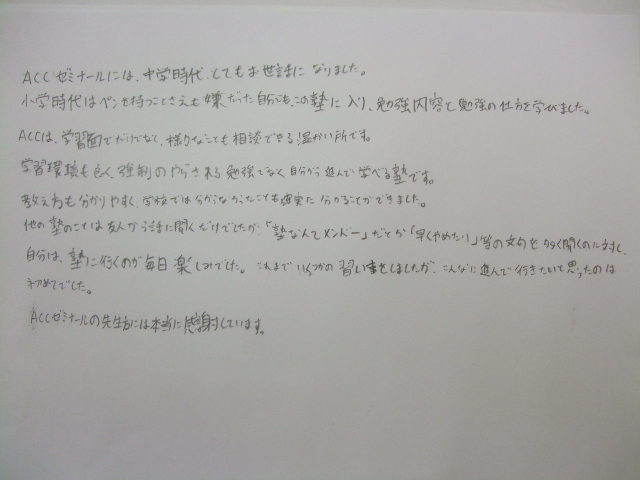 ACCゼミナールには、中学時代、とてもお世話になりました。
小学時代はペンを持つことさえも嫌だった自分でも、この塾に入り、勉強内容と勉強の仕方を学びました。
ACCは、学習面でだけでなく、様々なことも相談できる温かい所です。
学習環境も良く、強制のやらされる勉強でなく自分から進んで学べる塾です。
教え方も分かりやすく、学校では分からなかったことも確実に分かることができました。
他の塾のことは友人から話に聞くだけでしたが、「塾なんてメンドー」だとか「早くやめたい」等の文句を多く聞くのに対し、
自分は、塾に行くのが毎日楽しみでした。これまでいくつかの習い事をしましたが、こんなに進んで行きたいと思ったのは
初めてでした。
ACCゼミナールの先生方には本当に感謝しています。